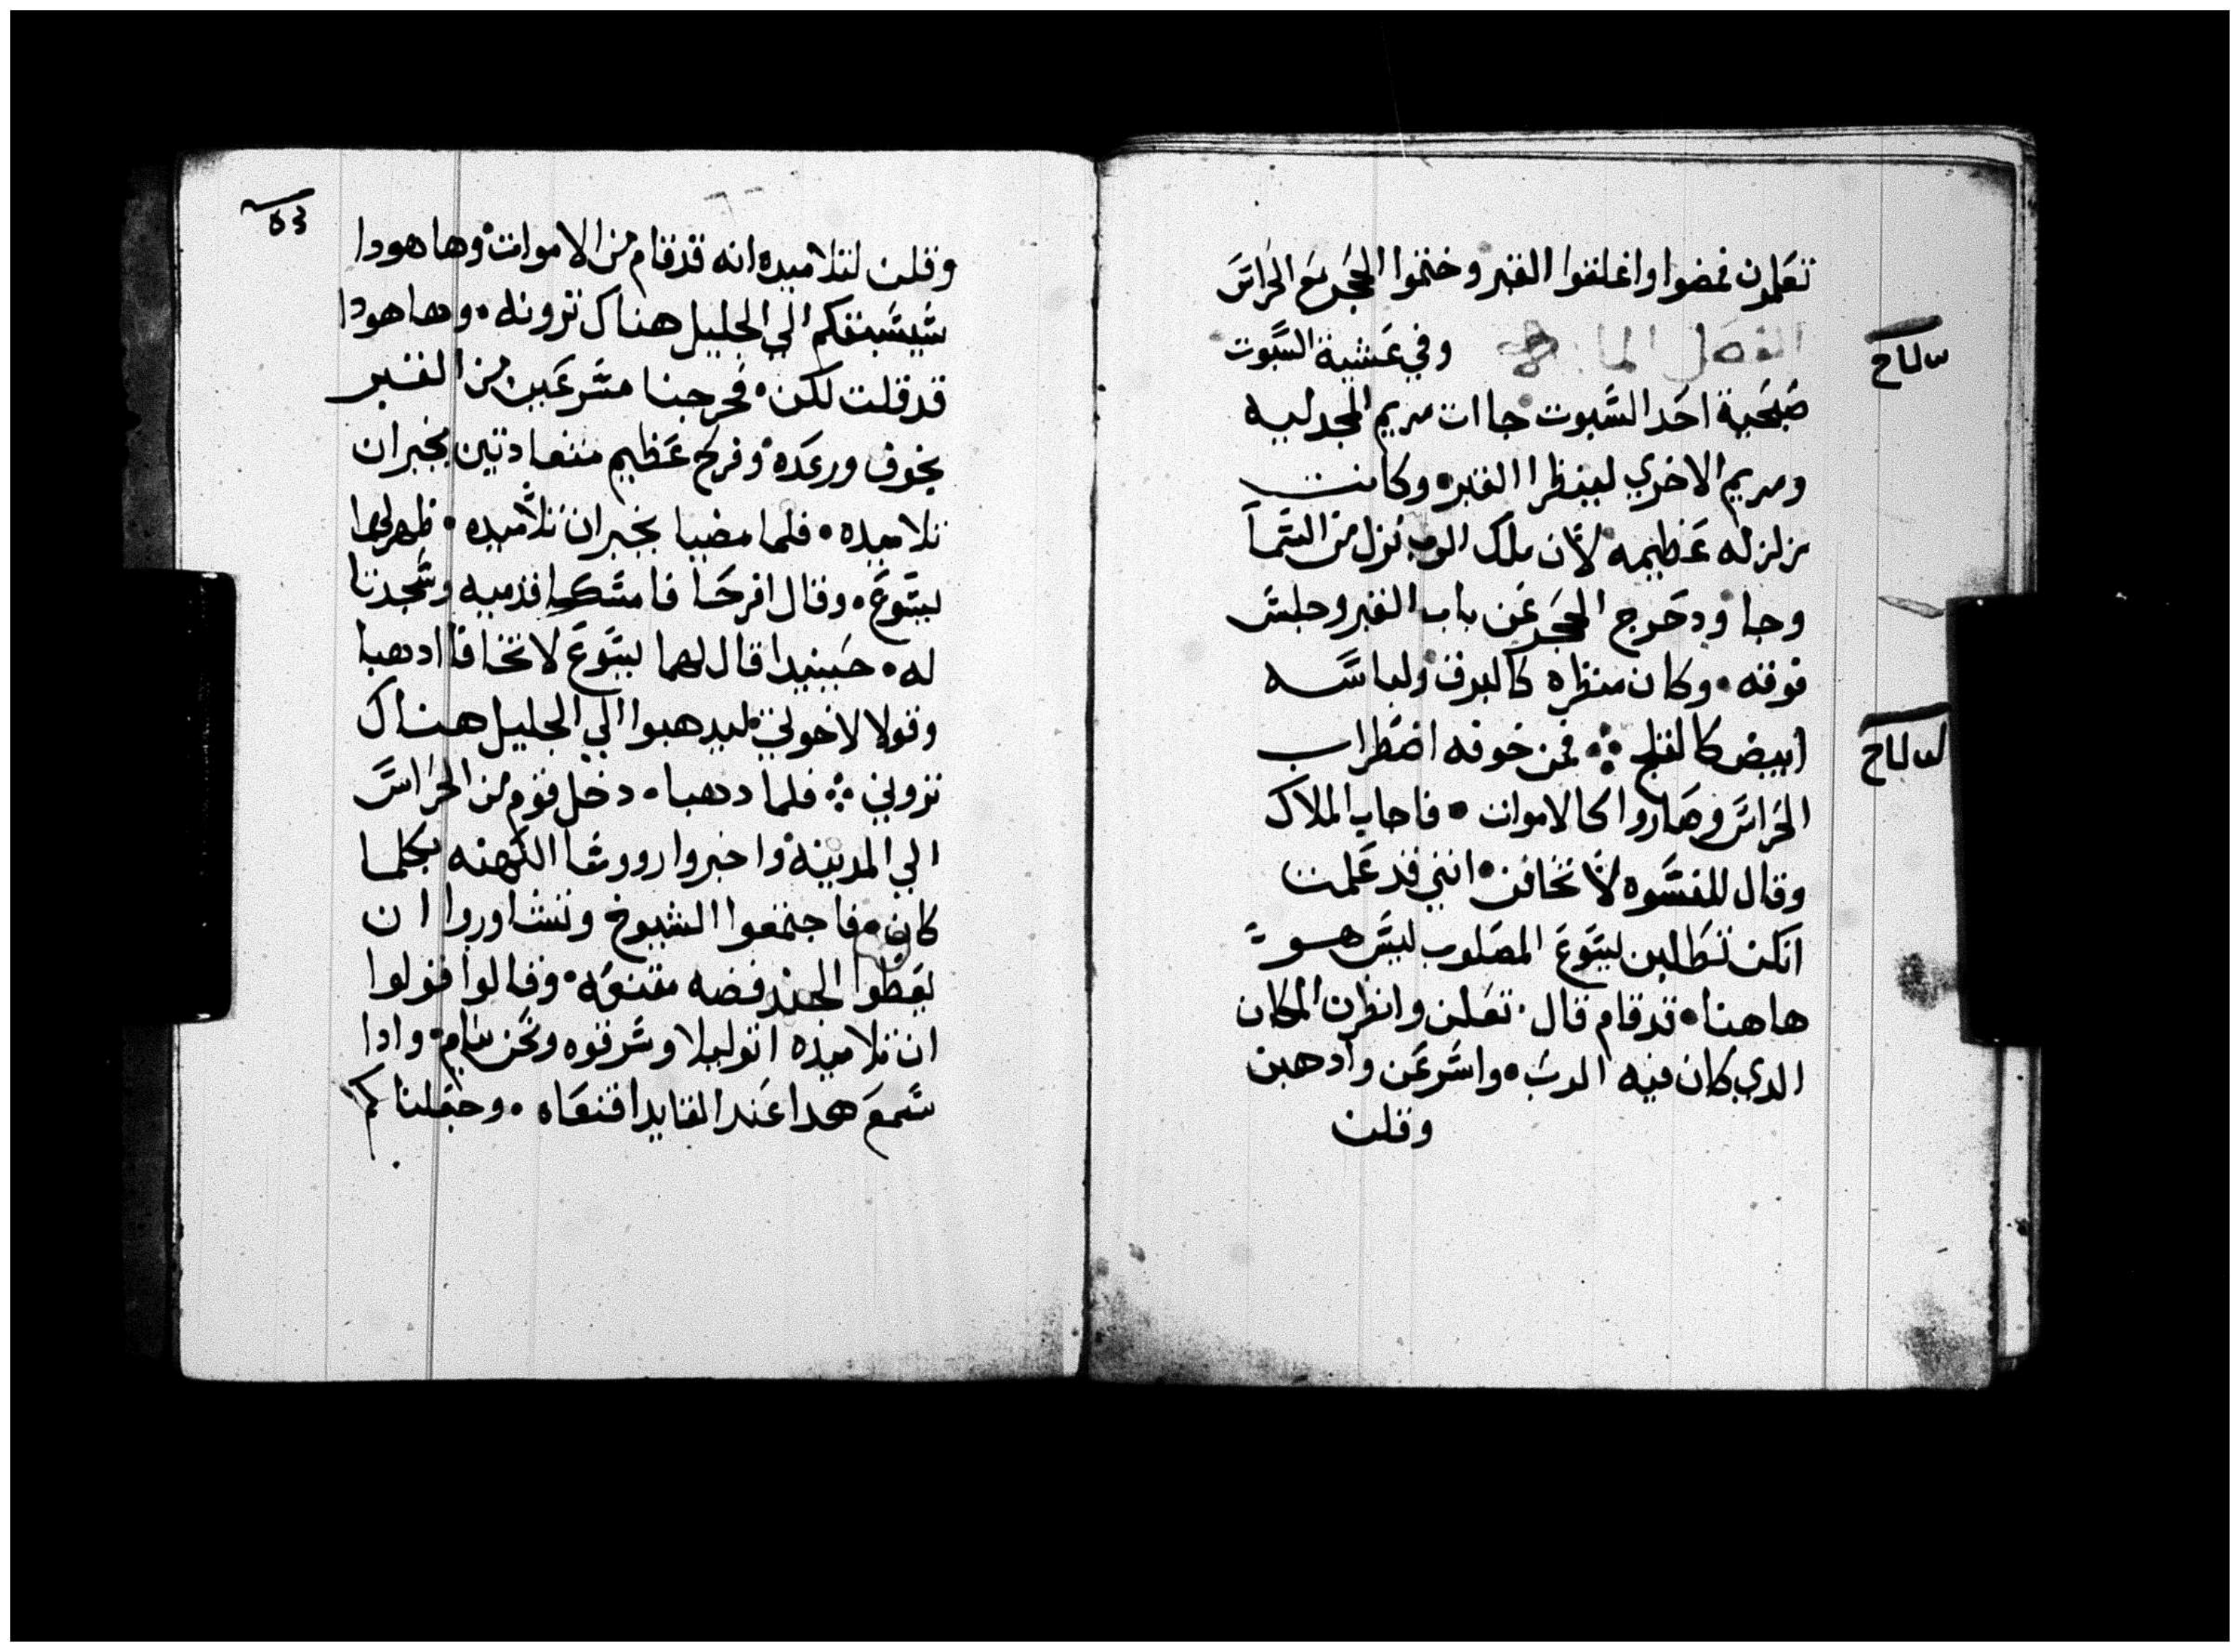 تعلمون فمضوا واغلقوا القبر وختموا الحجر مع الحراس
الفصل الما وفي عشية السبوت
صبحية احد السبوت جاات مريم المجدليه
ومريم الاخري لينظرا القبر وكانت
زلزله عظيمه لان ملاك الرب نزل من السما
وجا ودحرج الحجر عن باب القبر وجلس
فوقه وكان منظره كالبرق ولباسه
ابيض كالثلج فمن خوفه اضطراب
الحراس وصاروا كالاموات فاجاب الملاك
وقال للنسوه لا تخافن انني قد علمت
انكن تطلبن ليسوع المصلوب ليس هو
هاهنا قد قام قال تعلن وانظرن المكان
الدي كان فيه الرب واسرعن وادهبن
وقلن
وقلن لتلاميده انه قد قام من الاموات وها هودا
سيسبقكم الي الجليل هناك ترونه وها هودا
قد قلت لكن فخرجنا مسرعين من القبر
بخوف ورعده وفرح عظيم متعادتين بخبران
تلاميده فلما مضيا بخبران تلاميده ظهر لهما
يسوع وقال افرحا فامسكا قدميه وسجدتا
له حينيدا قال لهما يسوع لا تخافا ادهبا
وقولا لاخوتي ليدهبوا الي الجليل هناك
تروني فلما دهبا دخل قوم من الحراس
الي المدينة واخبروا رووسا الكهنه بكلما
كان فاجتمعوا الشيوخ وتشاوروا ان
يعطوا الجند فضه مقنعه وقالوا قولوا
ان تلاميذه اتو ليلا وسرقوه ونحن نيام وادا
سمع هدا عند القايد اقنعناه وجعلناكم